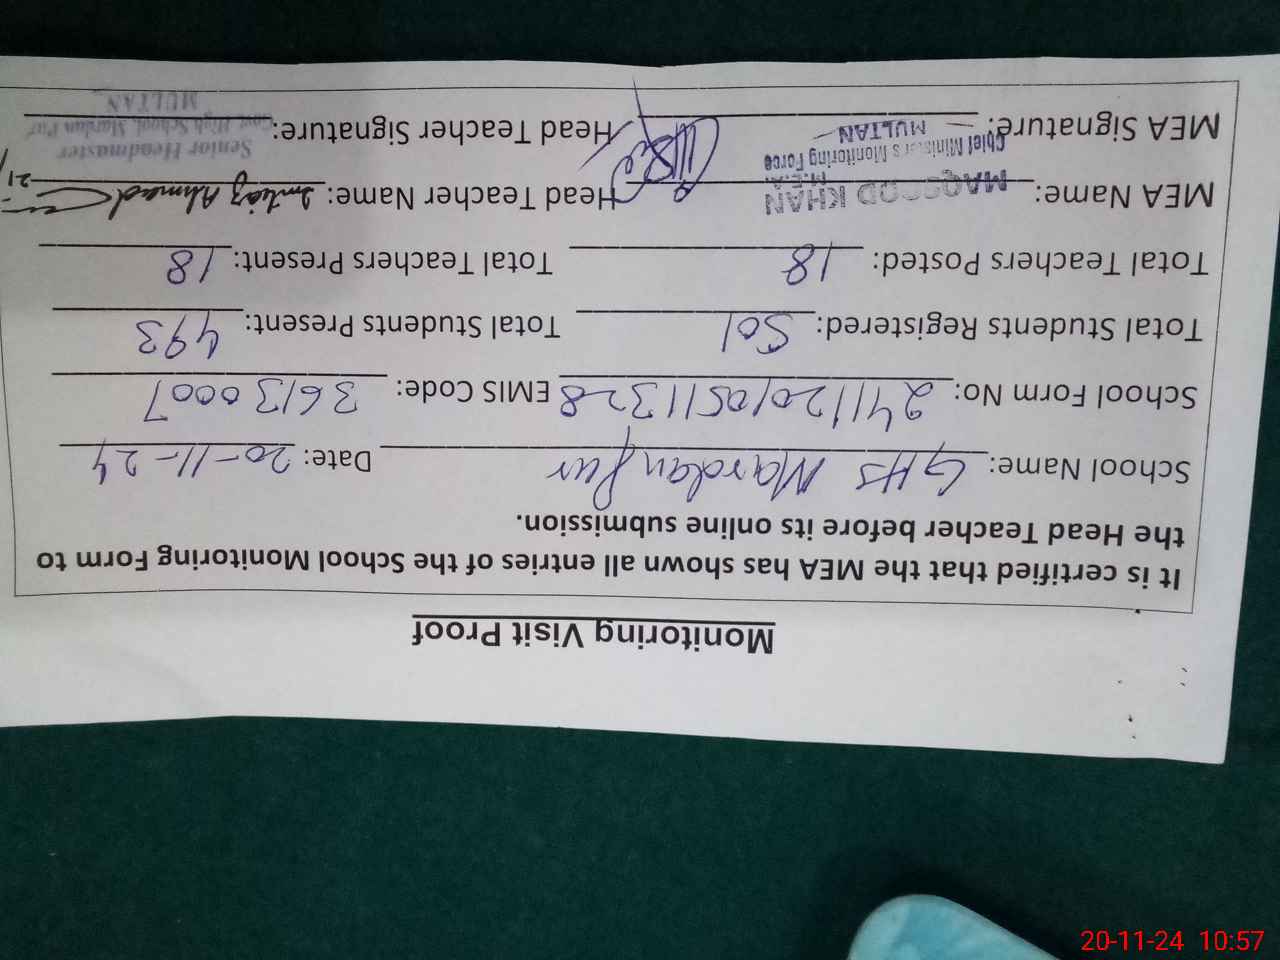 Monitoring Visit Proof
It is certified that the MEA has shown all entries of the School Monitoring Form to
the Head Teacher before its online submission.
School Name: GHS Mardan Pur Date: 20-11-24
School Form No: 2411201051 13228 EMIS Code: 36130007
Total Students Registered: 501 Total Students Present: 493
Total Teachers Posted: 18 Total Teachers Present: 18
MEA Name: MAQSOOD KHAN Head Teacher Name: Imtiaz Ahmad
M.E.A
Chief Minister's Monitoring Force
MULTAN
MEA Signature: Head Teacher Signature:
Senior Headmaster
Govt. High School, Mardan Pur
MULTAN
20-11-24 10:57